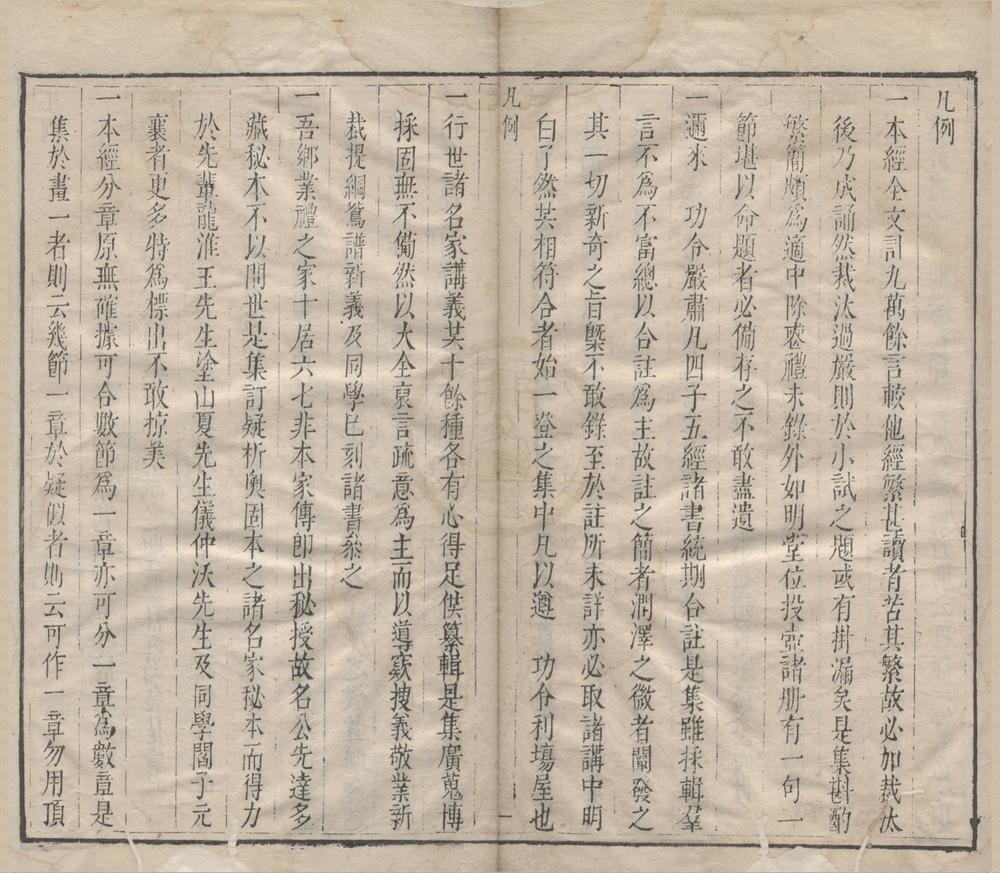 凡例
一本經全文計九萬餘言較他經繁甚讀者苦其繁故必加裁汰
後乃成誦然裁汰過嚴則於小試之題或有掛漏矣是集斟酌
繁簡頗為適中除喪禮未錄外如明堂位投壺諸册有一句一
節堪以命題者必備存之不敢盡遺
一邇來　功令嚴肅凡四子五經諸書統期合註是集雖採輯羣
言不為不富總以合註為主故註之簡者潤澤之微者闡發之
其一切新奇之旨槩不敢錄至於註所未詳亦必取諸講中明
白了然其相符合者始一登之集中凡以遵　功令利塲屋也
凡例
一
一行世諸名家講義共十餘種各有心得足供纂輯是集廣蒐博
採固無不備然以大全衷言疏意為主而以導窾搜義敬業新
裁提綱鴛譜新義及同學已刻諸書叅之
一吾鄉業禮之家十居六七非本家傳即出秘授故名公先達多
藏秘本不以問世是集訂疑析奧固本之諸名家秘本而得力
於先輩龍淮王先生塗山夏先生儀仲沃先生及同學閻子元
襄者更多特為標出不敢掠美
一本經分章原無確據可合數節為一章亦可分一章為數章是
集於畫一者則云幾節一章於疑似者則云可作一章勿用頂